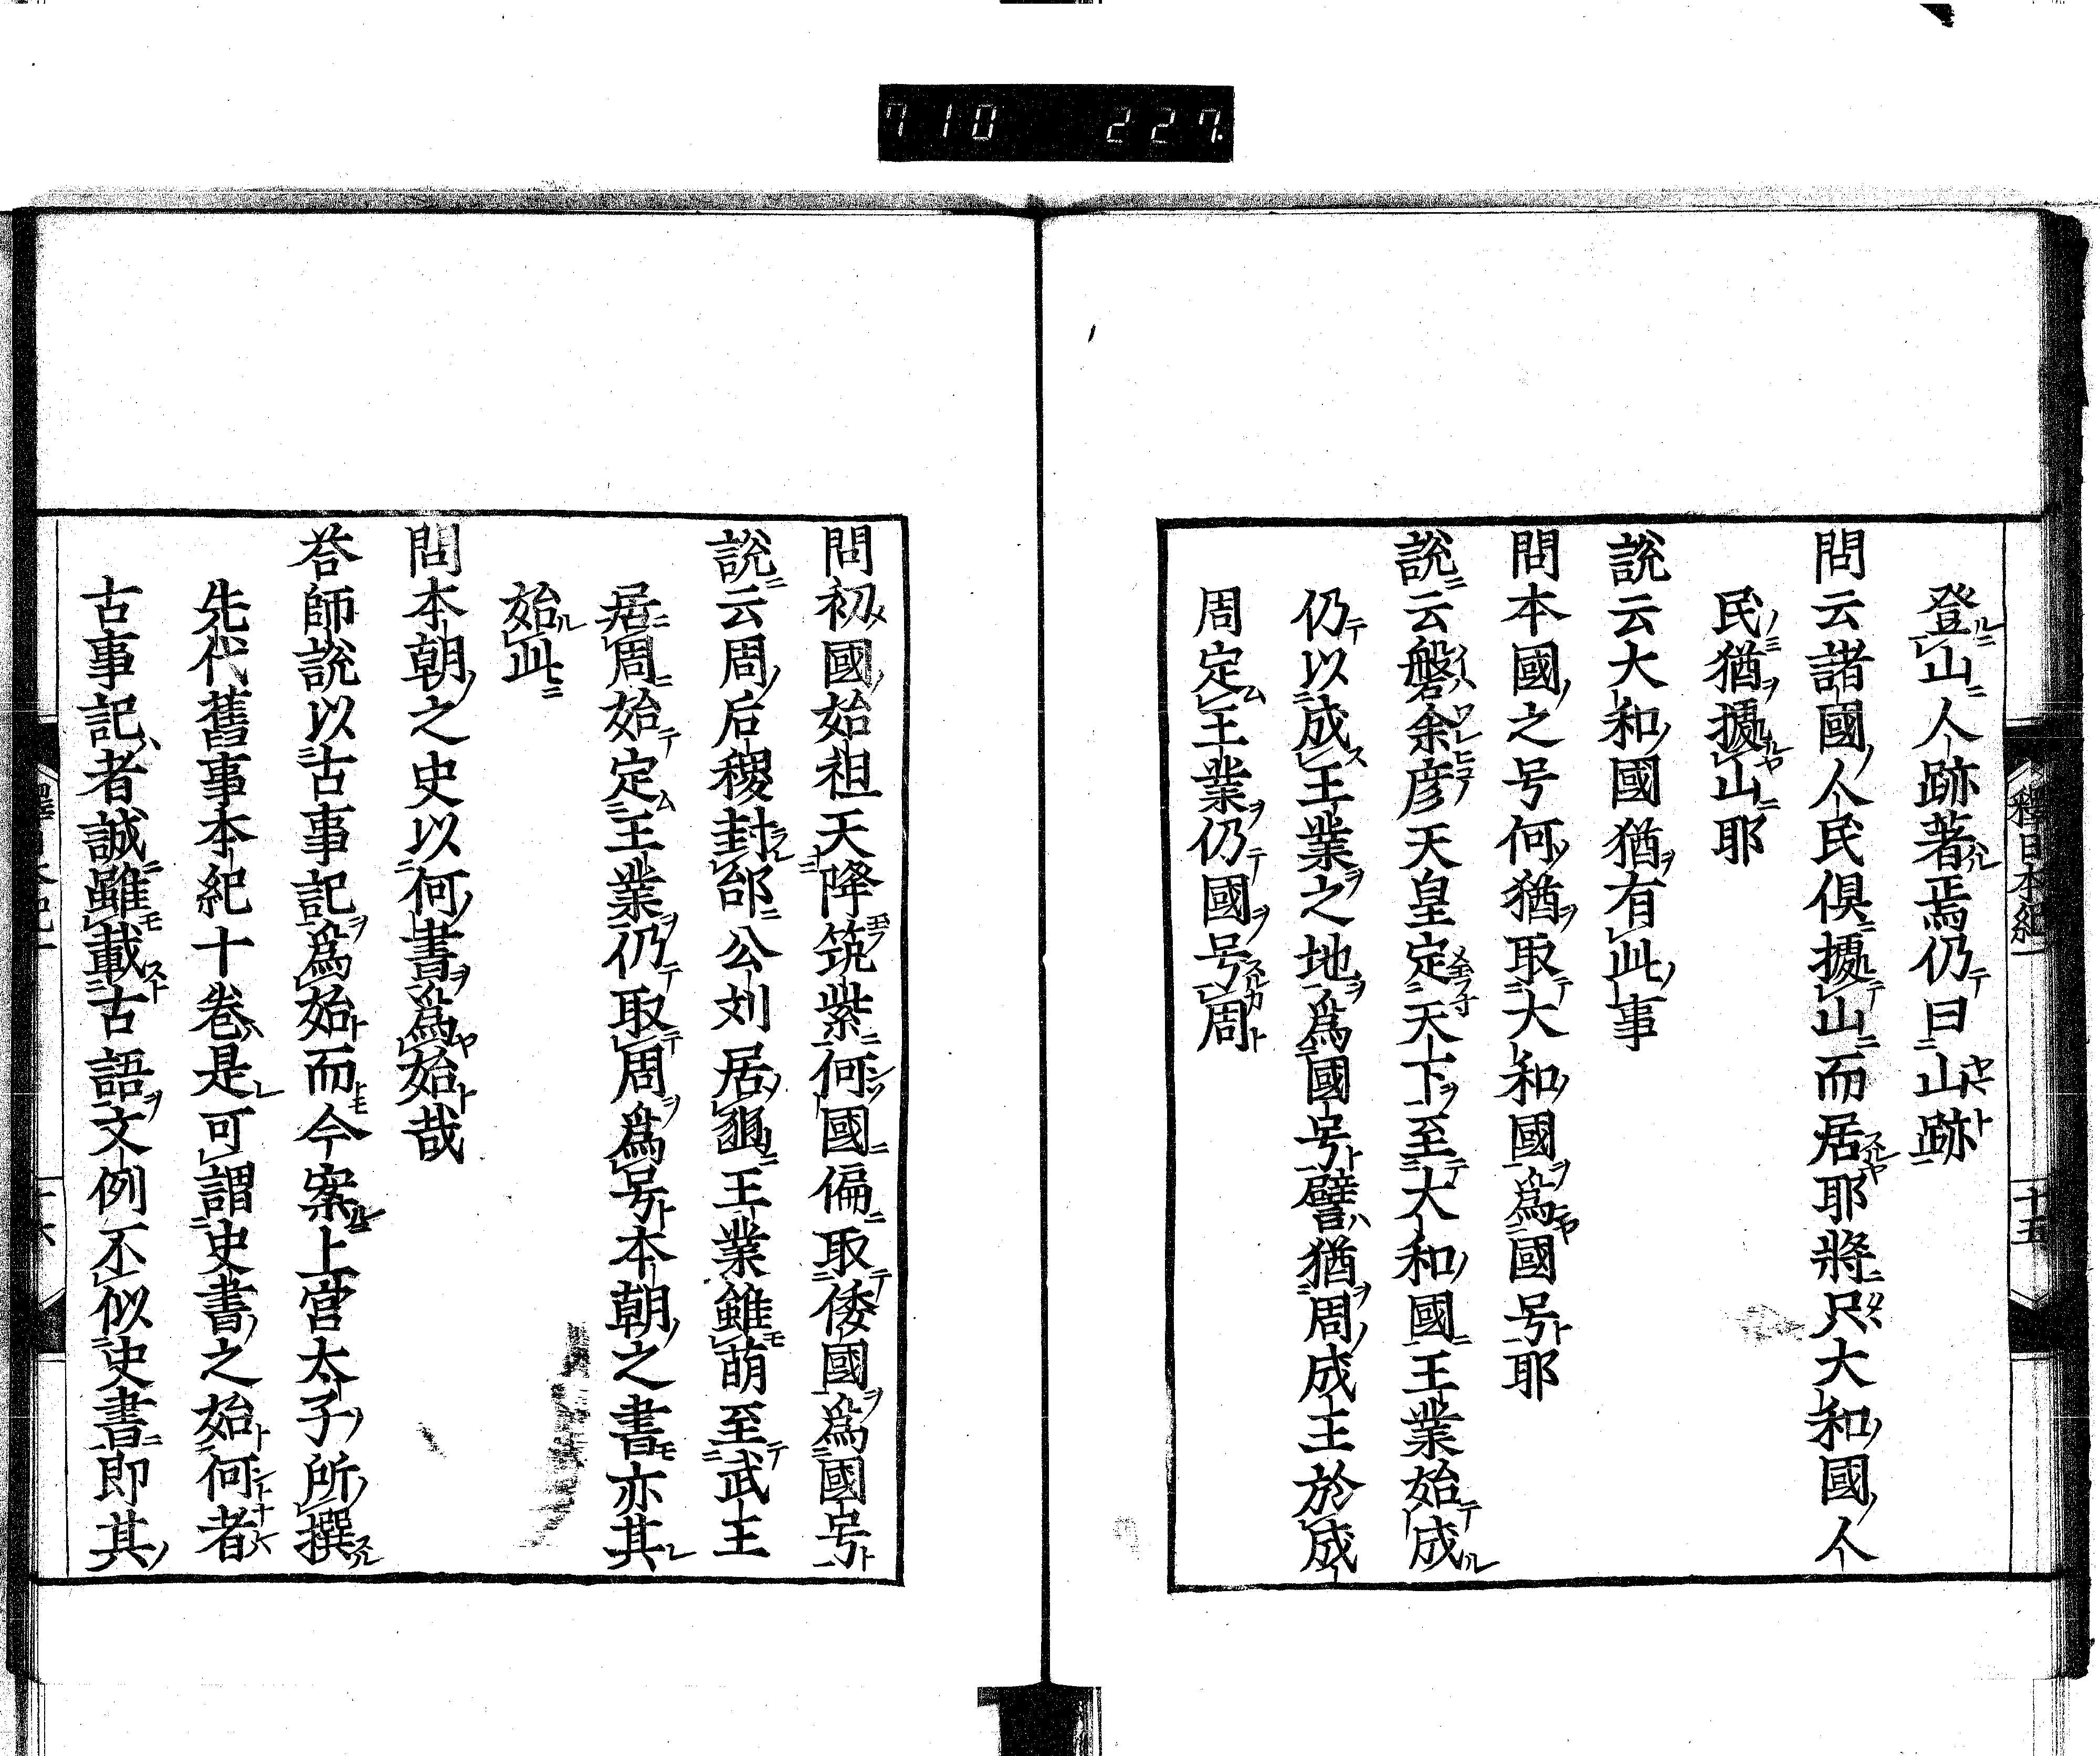 7 10 227.
釋日本紀一
十五
登山人跡著焉仍曰山跡
問云諸國人民俱據山而居耶將只大和國人
民猶據山耶
說云大和國猶有此事
問本國之号何猶取大和國爲國号耶
說云磐余彥天皇定天下至大和國王業始成
仍以成王業之地爲國号譬猶周成王於成
周定王業仍國号周
問初國始祖天降筑紫何國偏取倭國爲國号
說云周后稷封邰公刘居豳王業雖萌至武王
居周始定王業仍取周爲号本朝之書亦其
始此
問本朝之史以何書爲始哉
答師說以古事記爲始而今案上宮太子所撰
先代舊事本紀十卷是可謂史書之始何者
古事記者誠雖載古語文例不似史書即其